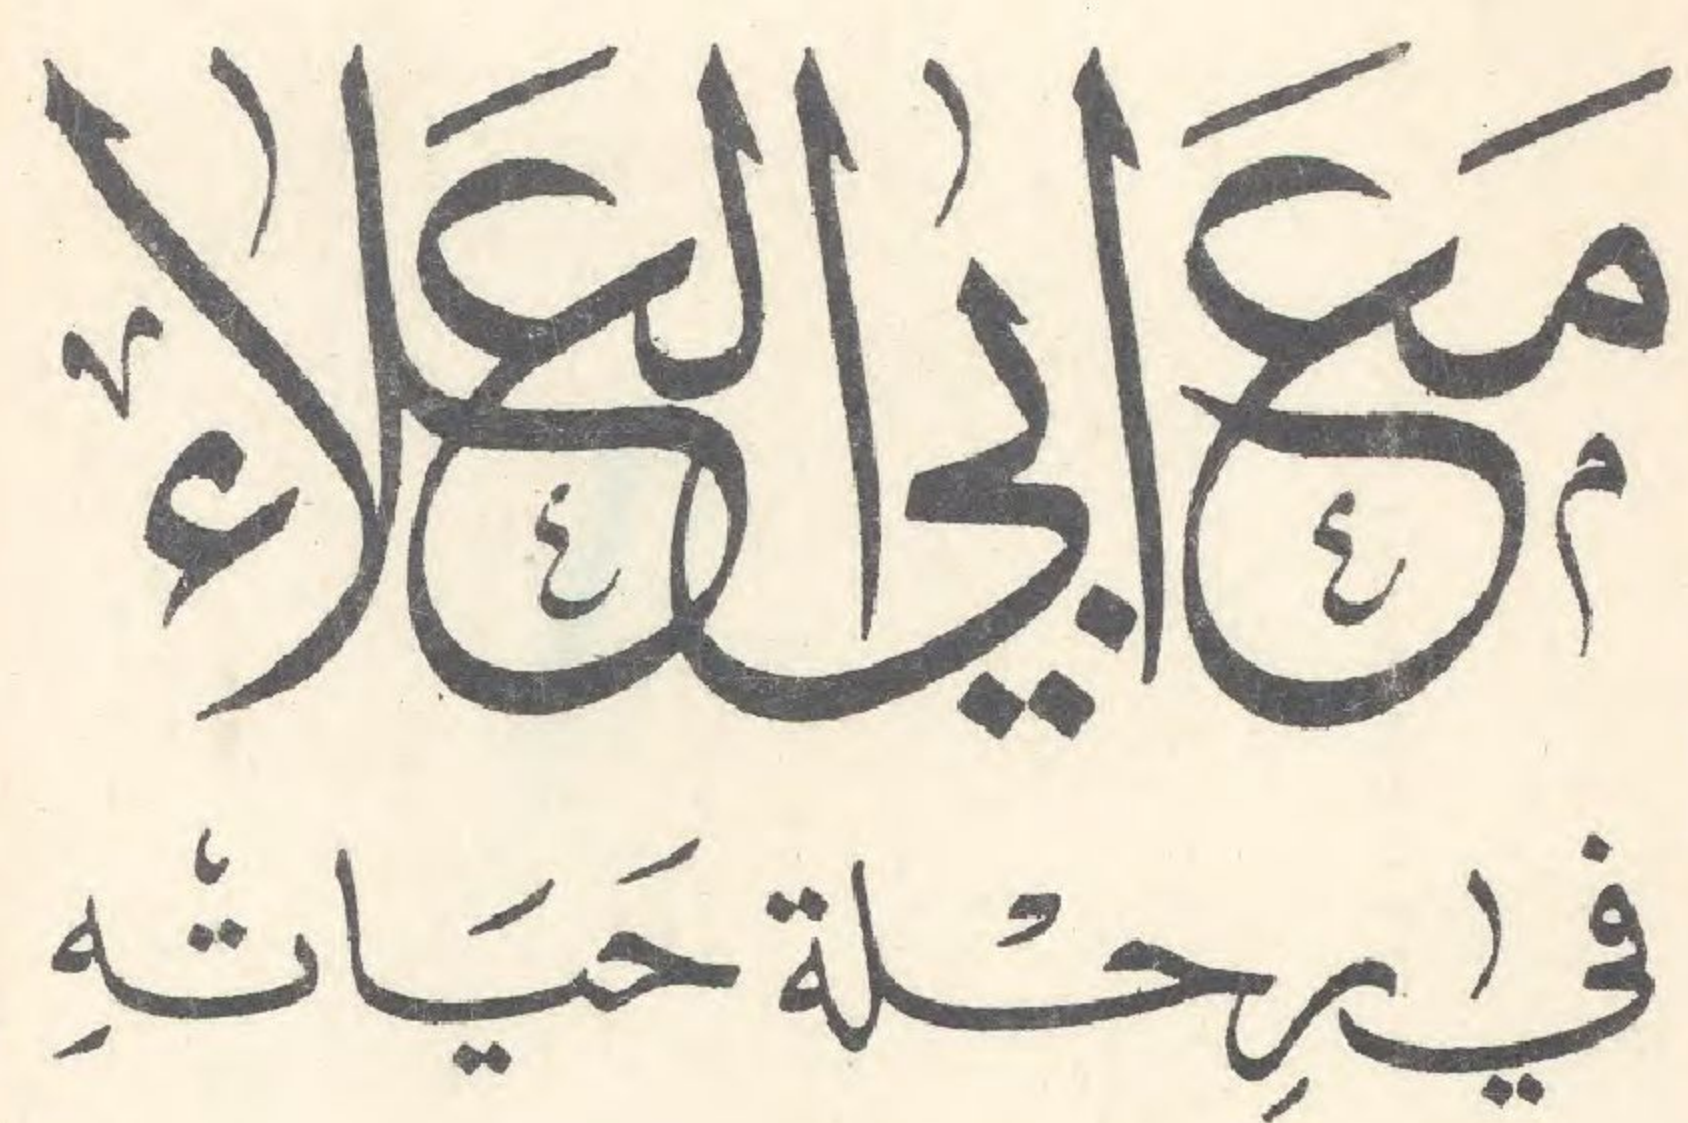 مَعَ ابي العَلاء
في رِحْلة حَيَاتهِ